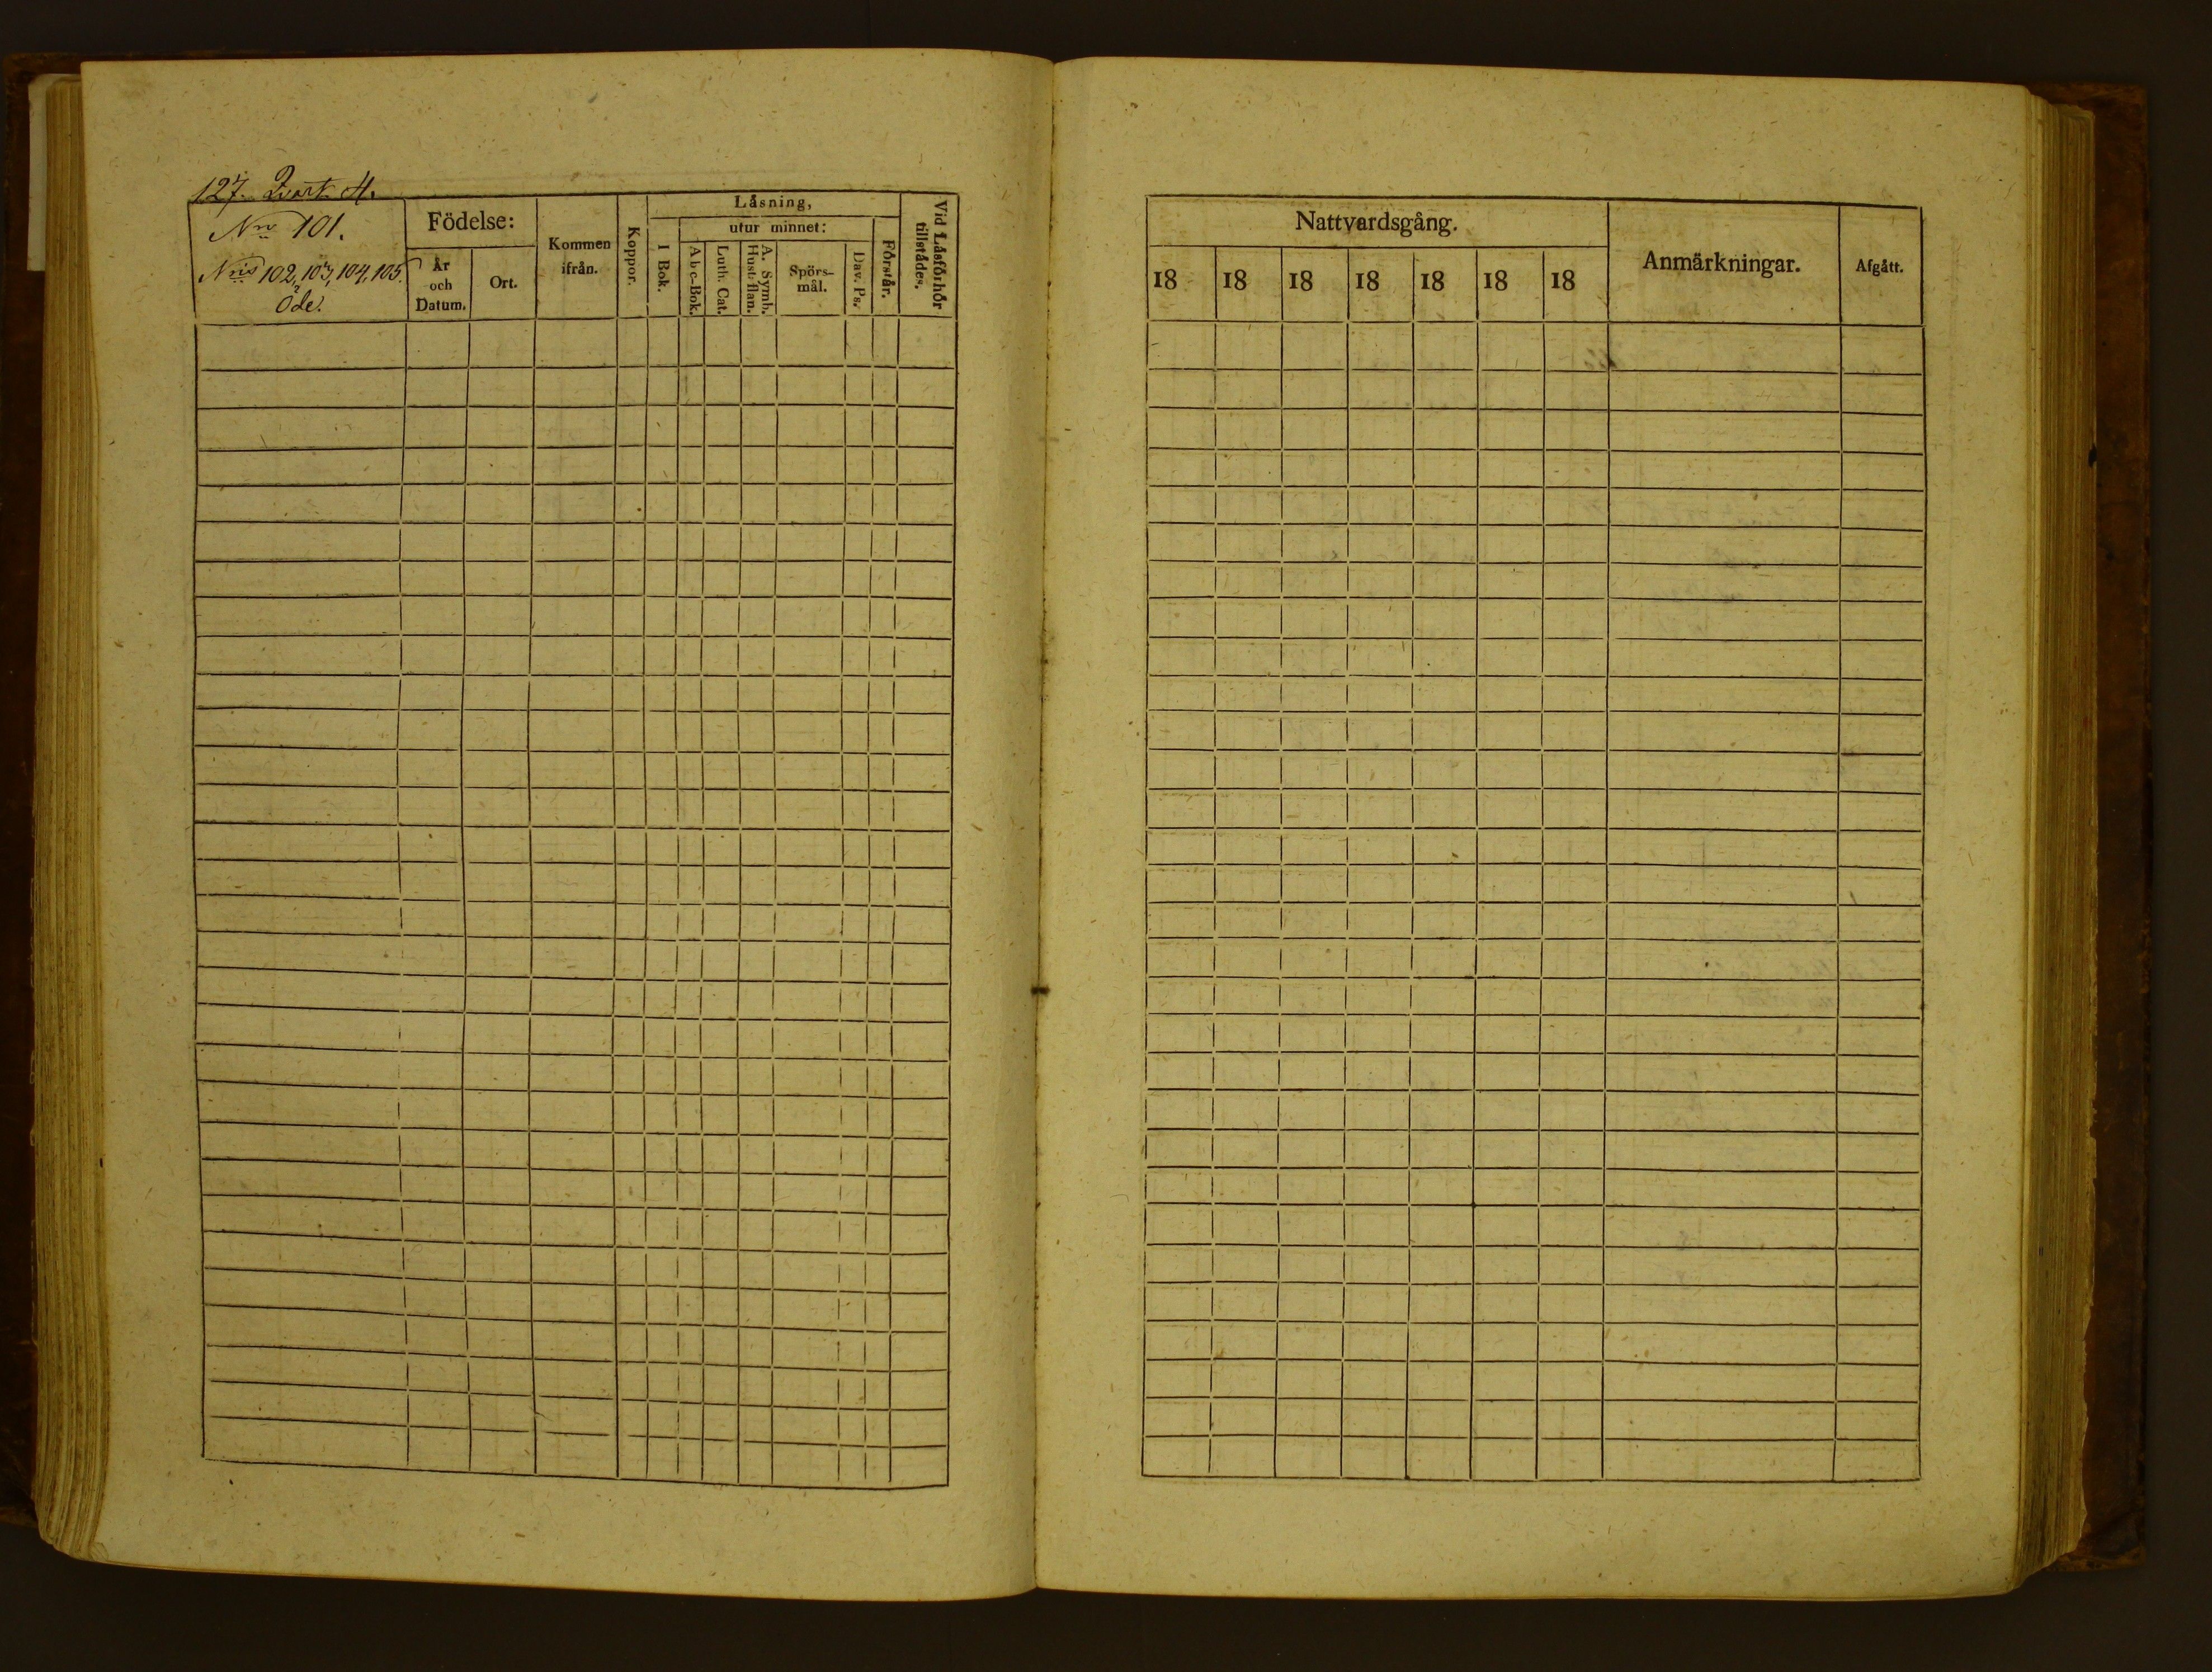 127. Qvart. 4.
No 101.
Nris 102, 103, 104, 105.
Öde.
Födelse:
År
och
Datum.
Ort.
Kommen
ifrån.
Koppor.
Läsning,
I Bok.
utur minnet:
Abc-Bok.
Luth. Cat.
A. Symb.
Hust.flan.
Spörs-
mål.
Dav. Ps.
Förstår.
Vid Läsförhör
tillstädes.
Nattvardsgång.
18 18 18 18 18 18 18
Anmärkningar.
Afgått.